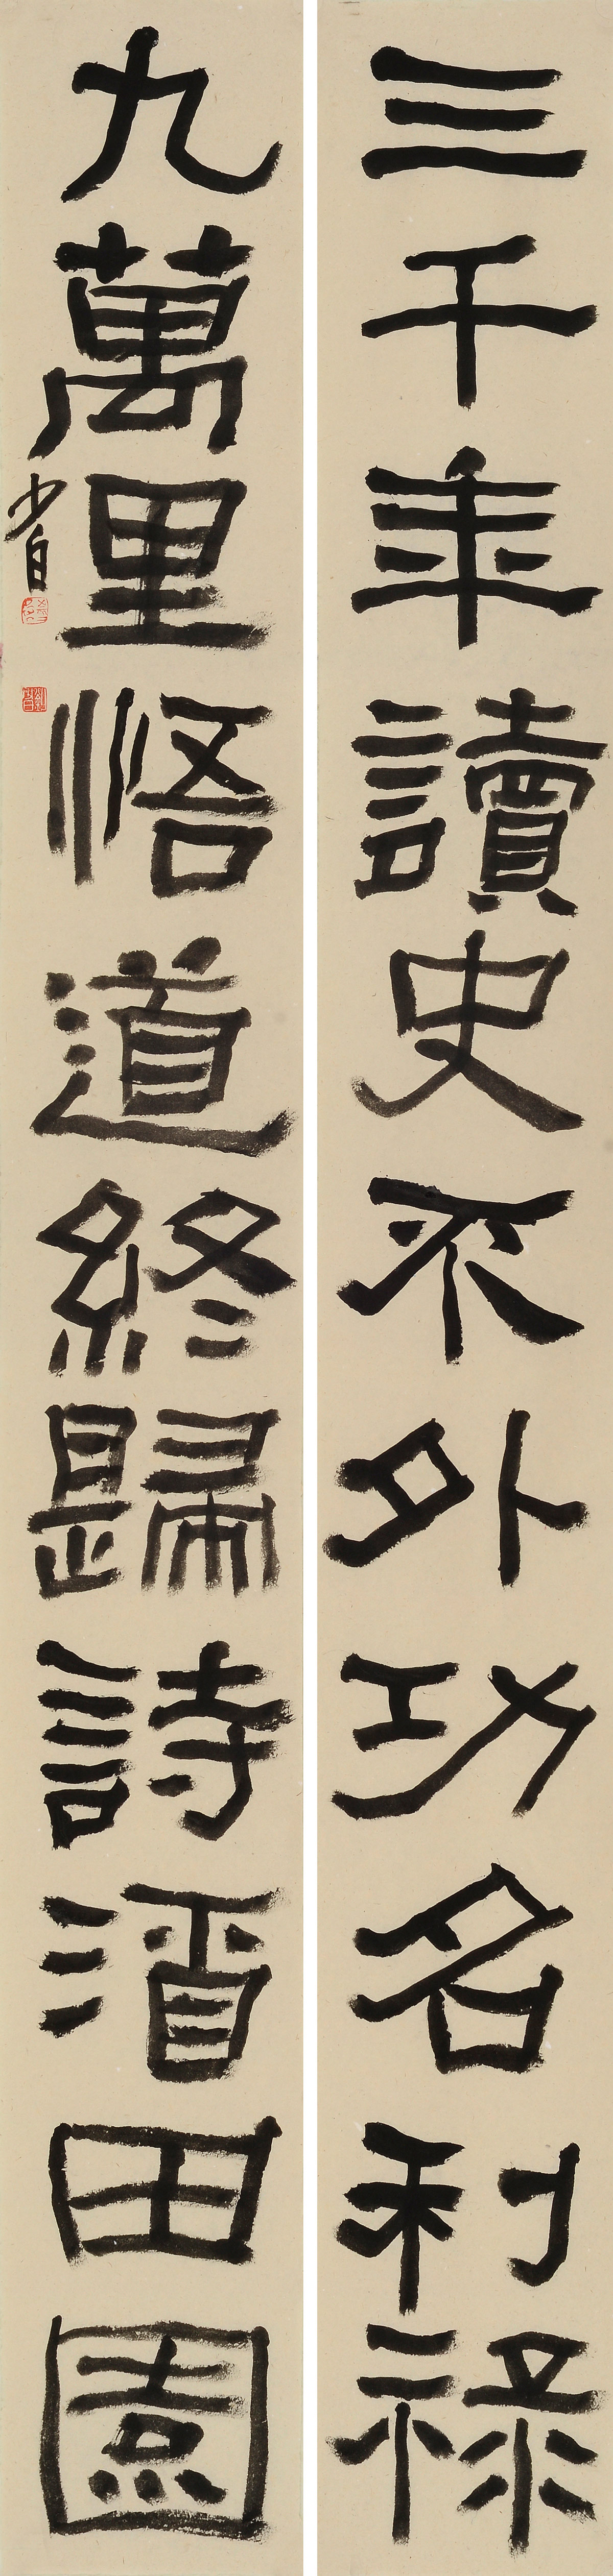 三千年讀史不外功名利祿
九萬里悟道終歸詩酒田園
少白